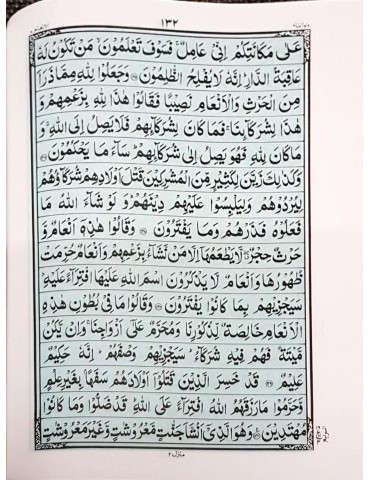 ١٣٢
عَلٰى مَكَانَتِكُمْ اِنِّىْ عَامِلٌ ۚ فَسَوْفَ تَعْلَمُوْنَ ۙ مَنْ تَكُوْنُ لَهٗ
عَاقِبَةُ الدَّارِ ؕ اِنَّهٗ لَا يُفْلِحُ الظّٰلِمُوْنَ ۞ وَجَعَلُوْا لِلّٰهِ مِمَّا ذَرَاَ
مِنَ الْحَرْثِ وَالْاَنْعَامِ نَصِيْبًا فَقَالُوْا هٰذَا لِلّٰهِ بِزَعْمِهِمْ وَ
هٰذَا لِشُرَكَآئِنَا ۚ فَمَا كَانَ لِشُرَكَآئِهِمْ فَلَا يَصِلُ اِلَى اللّٰهِ ۚ وَ
مَا كَانَ لِلّٰهِ فَهُوَ يَصِلُ اِلٰى شُرَكَآئِهِمْ ؕ سَآءَ مَا يَحْكُمُوْنَ ۞
وَكَذٰلِكَ زَيَّنَ لِكَثِيْرٍ مِّنَ الْمُشْرِكِيْنَ قَتْلَ اَوْلَادِهِمْ شُرَكَآؤُهُمْ
لِيُرْدُوْهُمْ وَلِيَلْبِسُوْا عَلَيْهِمْ دِيْنَهُمْ ؕ وَلَوْ شَآءَ اللّٰهُ مَا
فَعَلُوْهُ فَذَرْهُمْ وَمَا يَفْتَرُوْنَ ۞ وَقَالُوْا هٰذِهٖۤ اَنْعَامٌ وَّ
حَرْثٌ حِجْرٌ ۖ لَّا يَطْعَمُهَاۤ اِلَّا مَنْ نَّشَآءُ بِزَعْمِهِمْ وَاَنْعَامٌ حُرِّمَتْ
ظُهُوْرُهَا وَاَنْعَامٌ لَّا يَذْكُرُوْنَ اسْمَ اللّٰهِ عَلَيْهَا افْتِرَآءً عَلَيْهِ ؕ
سَيَجْزِيْهِمْ بِمَا كَانُوْا يَفْتَرُوْنَ ۞ وَقَالُوْا مَا فِىْ بُطُوْنِ هٰذِهِ
الْاَنْعَامِ خَالِصَةٌ لِّذُكُوْرِنَا وَمُحَرَّمٌ عَلٰٓى اَزْوَاجِنَا ۚ وَاِنْ يَّكُنْ
مَّيْتَةً فَهُمْ فِيْهِ شُرَكَآءُ ؕ سَيَجْزِيْهِمْ وَصْفَهُمْ ؕ اِنَّهٗ حَكِيْمٌ
عَلِيْمٌ ۞ قَدْ خَسِرَ الَّذِيْنَ قَتَلُوْۤا اَوْلَادَهُمْ سَفَهًۢا بِغَيْرِ عِلْمٍ
وَّحَرَّمُوْا مَا رَزَقَهُمُ اللّٰهُ افْتِرَآءً عَلَى اللّٰهِ ؕ قَدْ ضَلُّوْا وَمَا كَانُوْا
مُهْتَدِيْنَ ۞ وَهُوَ الَّذِىْۤ اَنْشَاَ جَنّٰتٍ مَّعْرُوْشٰتٍ وَّغَيْرَ مَعْرُوْشٰتٍ
منزل ٢